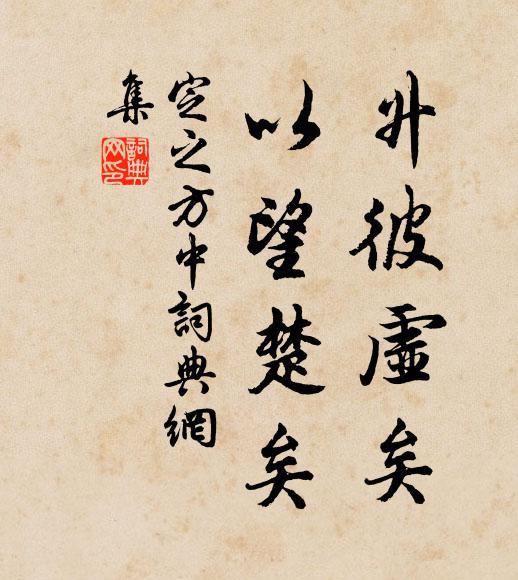 升彼虛矣
以望楚矣
定之方中詞典網
集
詞典
网印